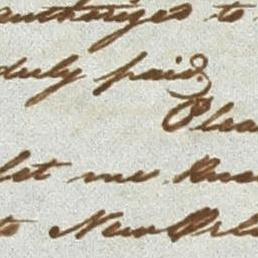 authorizes to
duly paid.
Plea
let me Know
to New Orle